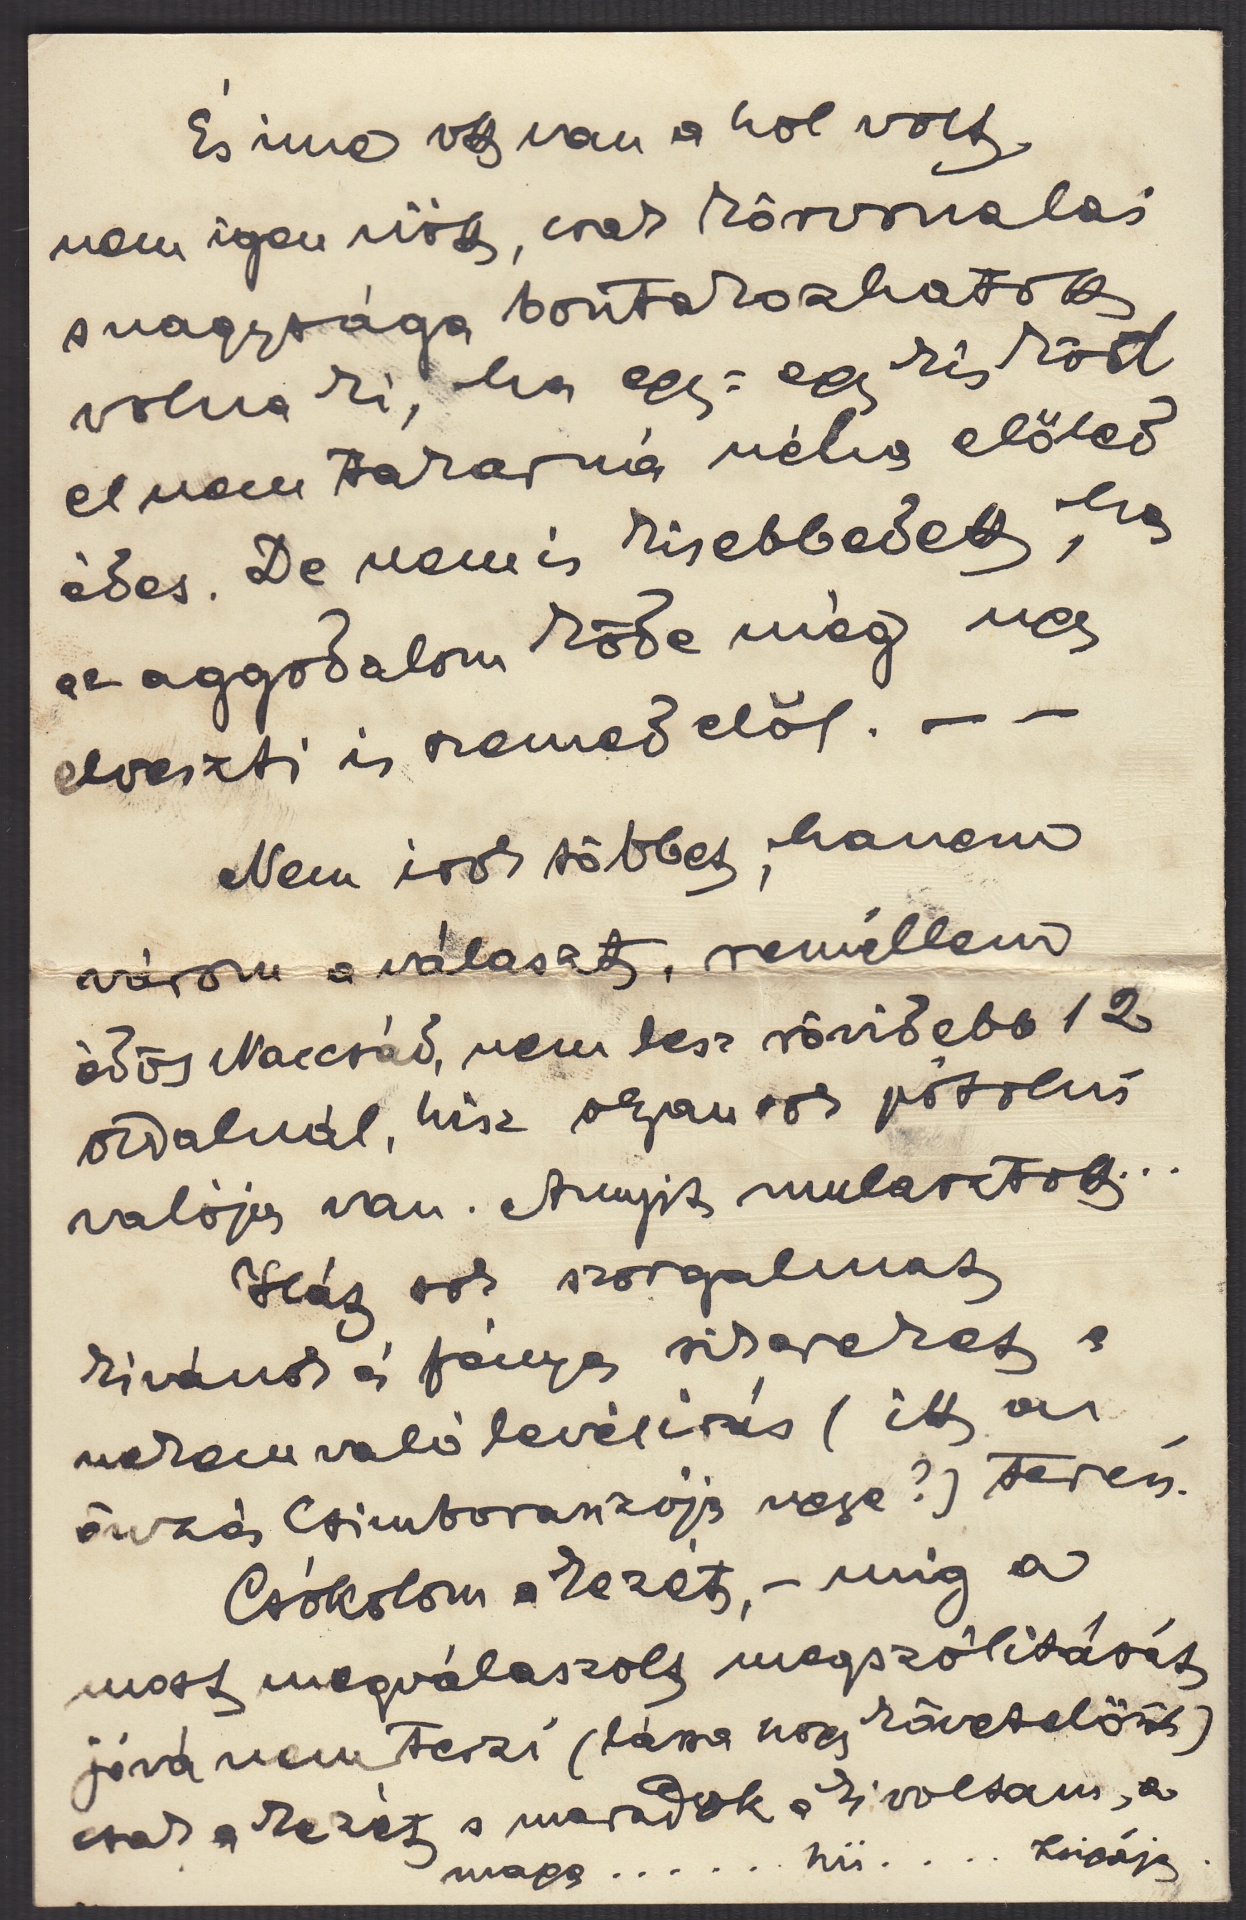 És ime ott van a hol volt
nem igen nőtt, csak körvonalai
s nagysága bontakozhatott
volna ki, ha egy-egy kis köd
el nem takarná néha előled
édes. De nem is kisebbedett, ha
az aggodalom köde még ugy
elveszti is szemed elől. — —
Nem irok többet, hanem
várom a választ, reméllem
édös Naccsád, nem lesz rövidebb 12
oldalnál, hisz olyan sok pótolni
valója van. Annyit mulasztott...
Hát sok szorgalmat
kivánok és fényes sikereket a
nekem való levélirás (itt az
önzés Csimborasszója ugye?) terén.
Csókolom a kezét, – mig a
most megválaszolt megszólitását
jóvá nem teszi (lássa hogy követelőzök)
csak a kezét s maradok a ki voltam, a
maga ...... hű ....